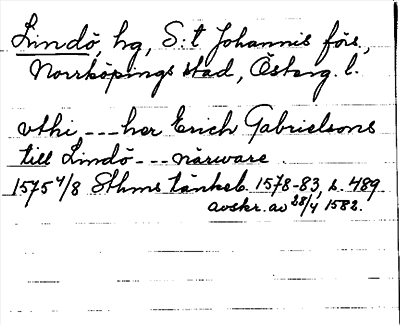 Lindö, hg, S:t Johannis förs.,
Norrköpings stad, Österg. l.
vthi --- her Erich Gabrielsons
till Lindö --- närware.
1575 4/8 Sthms tänkeb. 1578-83, s. 489
avskr. av 28/4 1582.